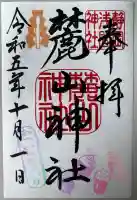 奉拝
麓山神社
令和五年十月一日